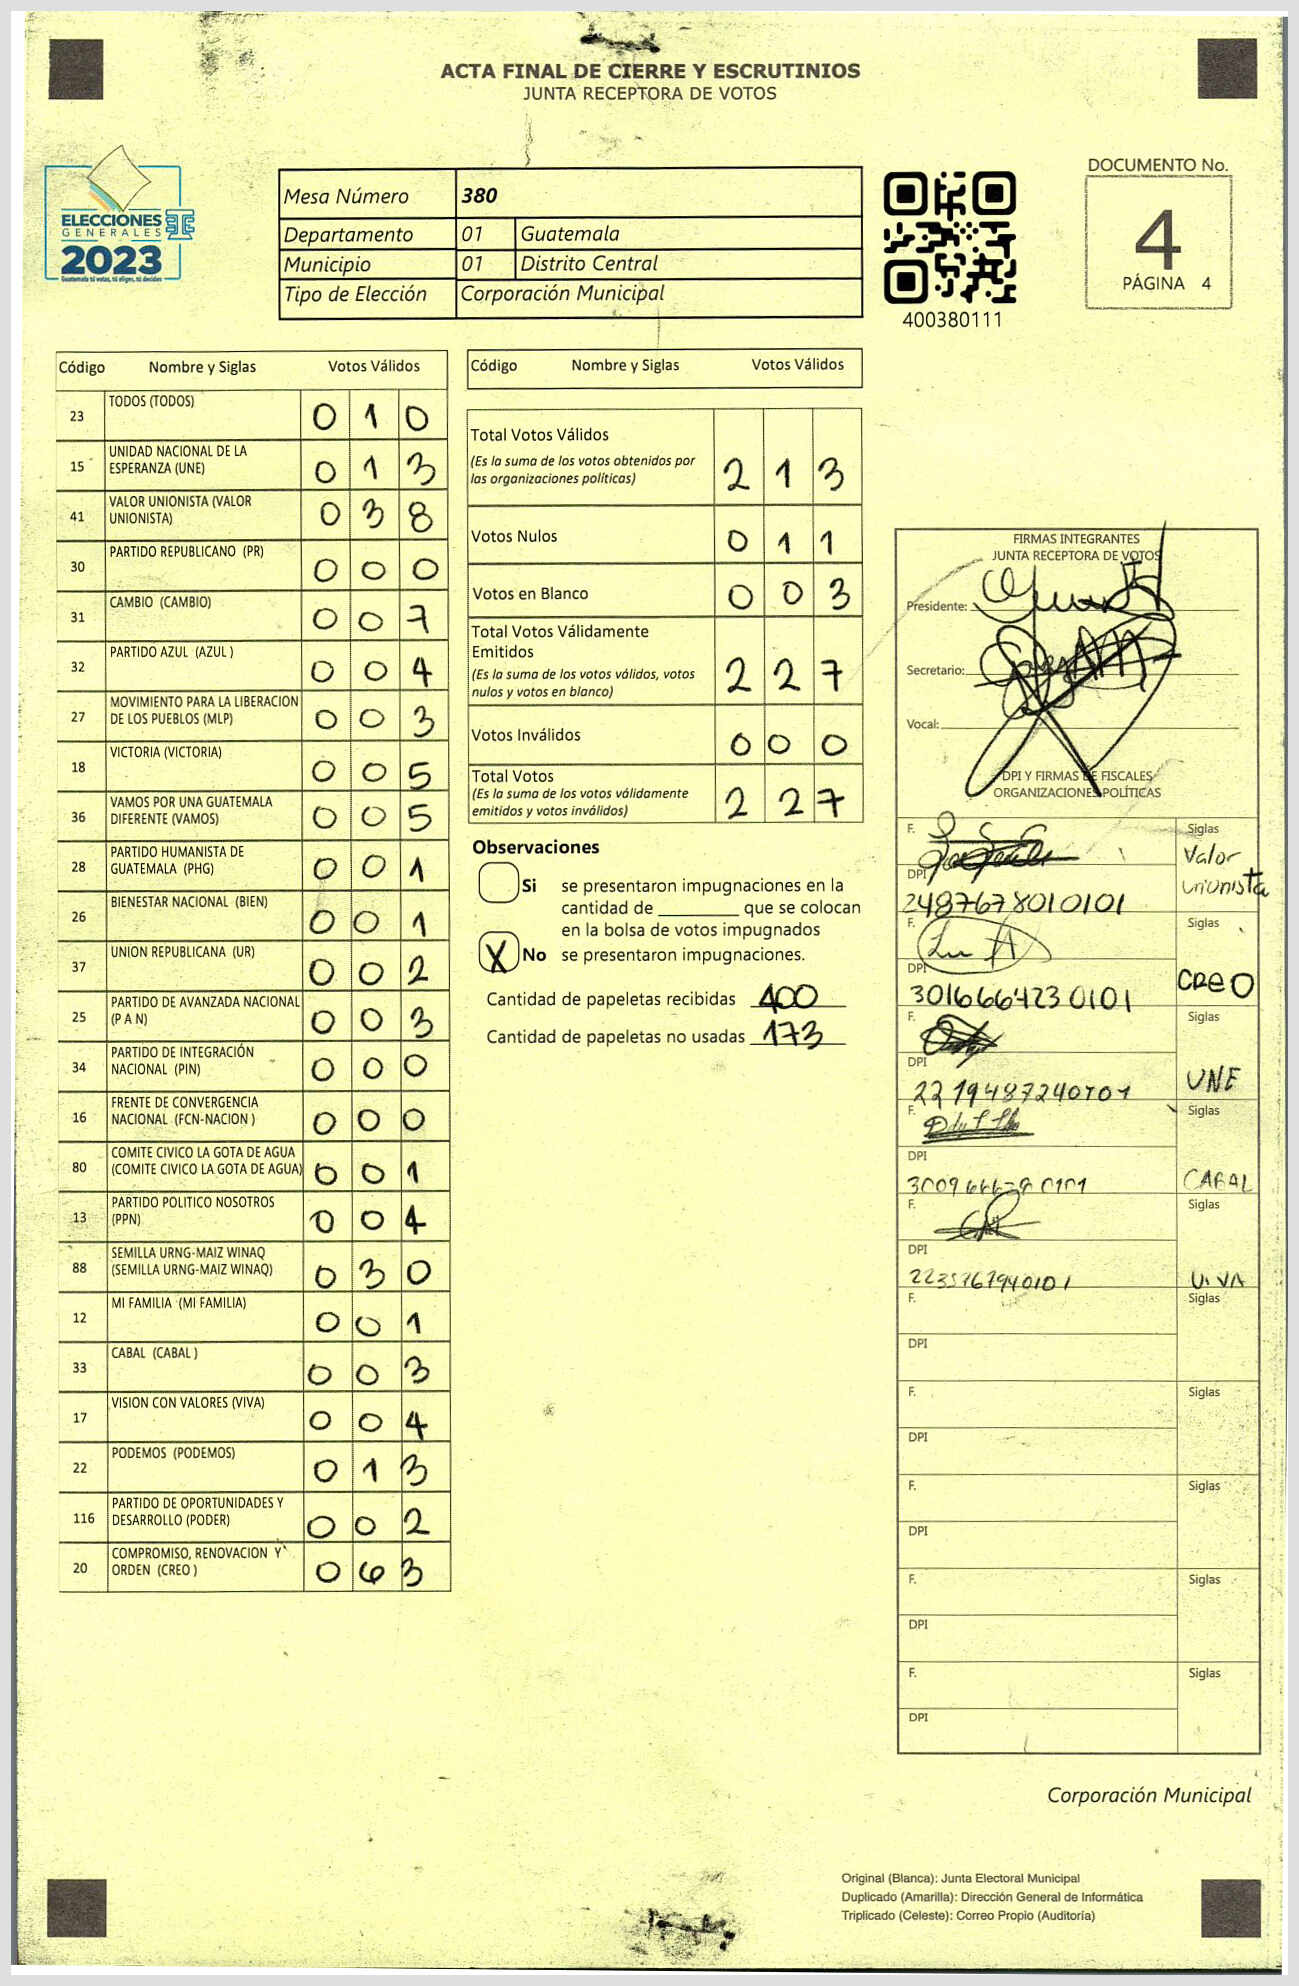 ACTA FINAL DE CIERRE Y ESCRUTINIOS
JUNTA RECEPTORA DE VOTOS
ELECCIONES
GENERALES
2023
Guatemala tú votas, tú eliges, tú decides
Mesa Número 380
Departamento 01 Guatemala
Municipio 01 Distrito Central
Tipo de Elección Corporación Municipal
400380111
DOCUMENTO No.
4
PÁGINA 4
Código Nombre y Siglas Votos Válidos
23 TODOS (TODOS) 0 1 0
15 UNIDAD NACIONAL DE LA
ESPERANZA (UNE) 0 1 3
41 VALOR UNIONISTA (VALOR
UNIONISTA) 0 3 8
30 PARTIDO REPUBLICANO (PR) 0 0 0
31 CAMBIO (CAMBIO) 0 0 7
32 PARTIDO AZUL (AZUL ) 0 0 4
27 MOVIMIENTO PARA LA LIBERACION
DE LOS PUEBLOS (MLP) 0 0 3
18 VICTORIA (VICTORIA) 0 0 5
36 VAMOS POR UNA GUATEMALA
DIFERENTE (VAMOS) 0 0 5
28 PARTIDO HUMANISTA DE
GUATEMALA (PHG) 0 0 1
26 BIENESTAR NACIONAL (BIEN) 0 0 1
37 UNION REPUBLICANA (UR) 0 0 2
25 PARTIDO DE AVANZADA NACIONAL
(P A N) 0 0 3
34 PARTIDO DE INTEGRACIÓN
NACIONAL (PIN) 0 0 0
16 FRENTE DE CONVERGENCIA
NACIONAL (FCN-NACION ) 0 0 0
80 COMITE CIVICO LA GOTA DE AGUA
(COMITE CIVICO LA GOTA DE AGUA) 0 0 1
13 PARTIDO POLITICO NOSOTROS
(PPN) 0 0 4
88 SEMILLA URNG-MAIZ WINAQ
(SEMILLA URNG-MAIZ WINAQ) 0 3 0
12 MI FAMILIA (MI FAMILIA) 0 0 1
33 CABAL (CABAL ) 0 0 3
17 VISION CON VALORES (VIVA) 0 0 4
22 PODEMOS (PODEMOS) 0 1 3
116 PARTIDO DE OPORTUNIDADES Y
DESARROLLO (PODER) 0 0 2
20 COMPROMISO, RENOVACION Y
ORDEN (CREO ) 0 6 3
Código Nombre y Siglas Votos Válidos
Total Votos Válidos
(Es la suma de los votos obtenidos por
las organizaciones políticas) 2 1 3
Votos Nulos 0 1 1
Votos en Blanco 0 0 3
Total Votos Válidamente
Emitidos
(Es la suma de los votos válidos, votos
nulos y votos en blanco) 2 2 7
Votos Inválidos 0 0 0
Total Votos
(Es la suma de los votos válidamente
emitidos y votos inválidos) 2 2 7
Observaciones
Si se presentaron impugnaciones en la
cantidad de ________ que se colocan
en la bolsa de votos impugnados
X No se presentaron impugnaciones.
Cantidad de papeletas recibidas 400
Cantidad de papeletas no usadas 173
FIRMAS INTEGRANTES
JUNTA RECEPTORA DE VOTOS
Presidente:
Secretario:
Vocal:
DPI Y FIRMAS DE FISCALES
ORGANIZACIONES POLÍTICAS
F. Siglas
Valor
Unionista
DPI
2487678010101
F. Siglas
DPI CREO
3016664230101
F. Siglas
DPI UNE
F. Siglas
DPI
CABAL
F. Siglas
DPI
VIVA
F. Siglas
DPI
F. Siglas
DPI
F. Siglas
DPI
F. Siglas
DPI
F. Siglas
DPI
Corporación Municipal
Original (Blanca): Junta Electoral Municipal
Duplicado (Amarilla): Dirección General de Informática
Triplicado (Celeste): Correo Propio (Auditoría)